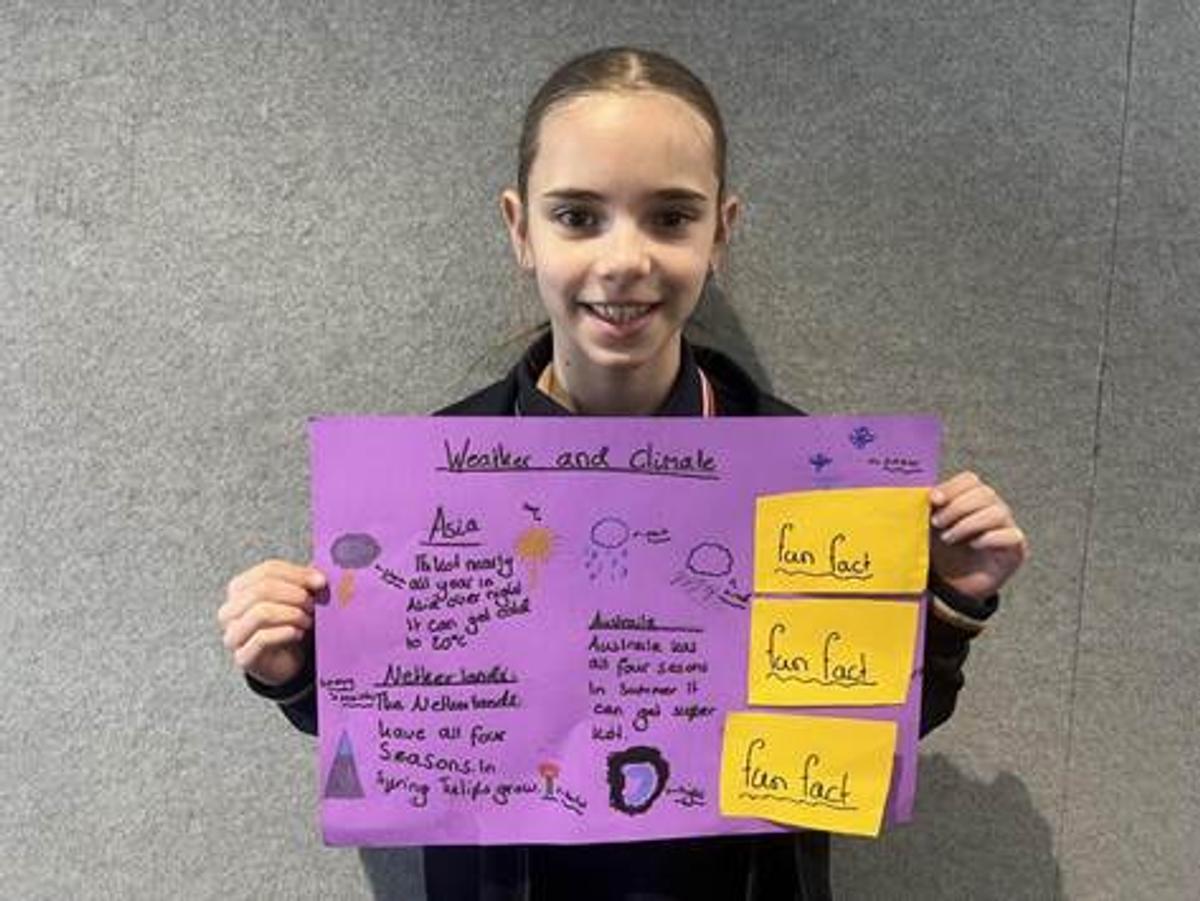 Weather and Climate
Asia
all year in
Asia over night
it can get
to 20°c
Netherlands
The Netherlands
have all four
Seasons. In
Spring Tulips grow.
Australia
Australia has
all four sesons
In Summer it
can get super
hot.
fun fact
fun fact
fun fact